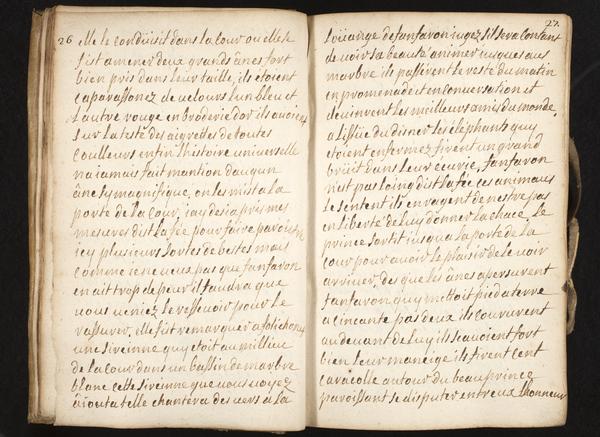 26
Elle le conduisit dans la cour ou elle
fist amener deux grands ânes fort
bien pris dans leur taille, ils étoient
caparassonez de velours l'un bleu et
l'autre rouge en broderie d'or ils avoient
sur la teste des aigrettes de toutes
coulleurs enfin l'histoire universelle
na jamais fait mantion daugun
âne sy magnifique, on les mist a la
porte de la cour, jay desja pris mes
mesures dist la fée pour faire paroitre
icy plusieurs sortes de bestes mais
comme je ne veux pas que fanfaron
en ait trop de peur il faudra que
vous veniez le ressevoir pour le
rassurer. elle fit remarquer a folichon
une sireinne quy etoit au millieu
de la cour dans un bassin de marbre
blanc cette sireinne que vous voyez
ajouta telle chantera des vers a la
27.
loüange de fanfaron jugez s'il sera contant
de voir sa beauté animer jusques aux
marbre ils passerent le reste du matin
en promenade et en conversation et
devinrent les meilleurs amis du monde,
a l'issüe du disner les éléphants quy
étoient enfermez firent un grand
bruit dans leur écurie, fanfaron
n'est pas loing dist la fée ces animaux
le sentent ils enragent de nestre pas
en liberté de luy donner la chace, Le
prince sortit jusqua la porte de la
cour pour avoir le plaisir de le voir
arriver, des que les ânes apersurent
fanfaron quy mettoit pied a terre
a cincante pas deux ils coururent
au devant de luy ils scavoient fort
bien leur maneige ils firent cent
caracolle autour du beau prince
paroissant se disputer entreux lhonneur